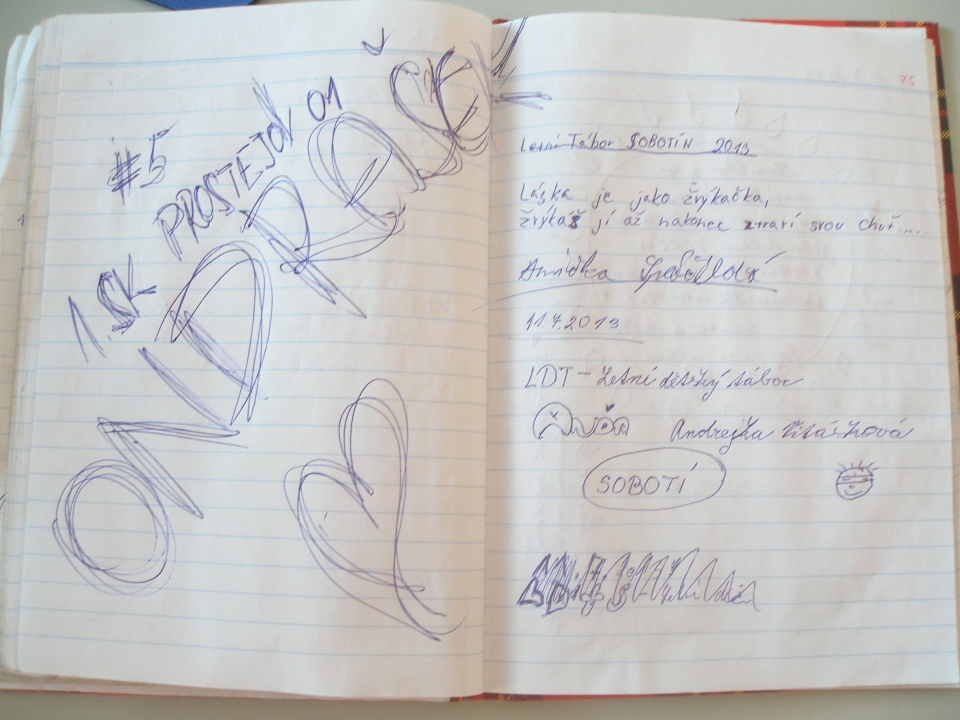 #5
1. SK PROSTĚJOV 01
ONDRÁŠEK
75
Letní Tábor SOBOTÍN 2013
Láska je jako žvýkačka,
žvýkáš jí až nakonec ztratí svou chuť.....
11.7.2013
LDT - Letní dětský tábor
Andrejka
SOBOTÍ